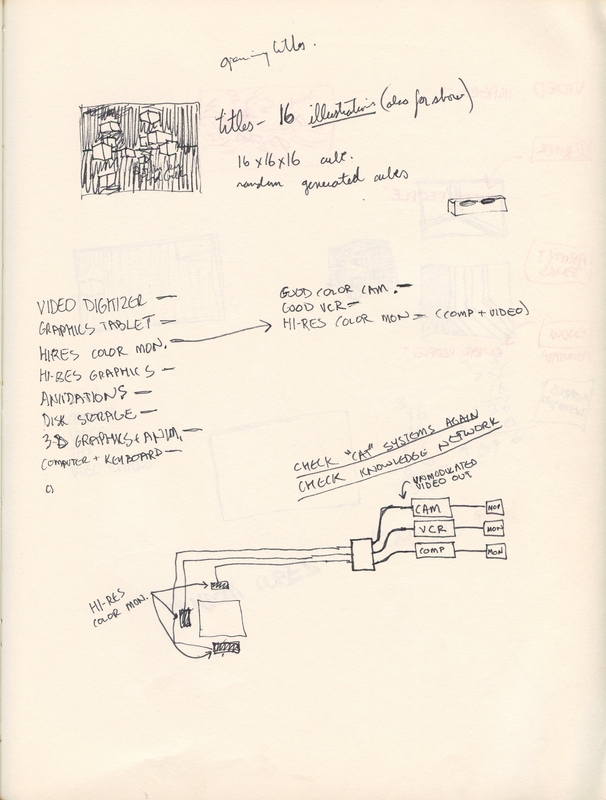 opening titles.
titles - 16 illustrations (also for show)
16 x 16 x 16 cube.
random generated cubes
VIDEO DIGITIZER —
GRAPHICS TABLET —
HIRES COLOR MON. —
HI-RES GRAPHICS —
ANIMATIONS —
DISK STORAGE —
3-D GRAPHICS + ANIM. —
COMPUTER + KEYBOARD —
GOOD COLOR CAM. —
GOOD VCR —
HI-RES COLOR MON — (COMP + VIDEO)
CHECK "CAT" SYSTEMS AGAIN
CHECK KNOWLEDGE NETWORK
UNMODULATED
VIDEO OUT
CAM
MON
VCR
MON
COMP
MON
HI-RES
COLOR MON.